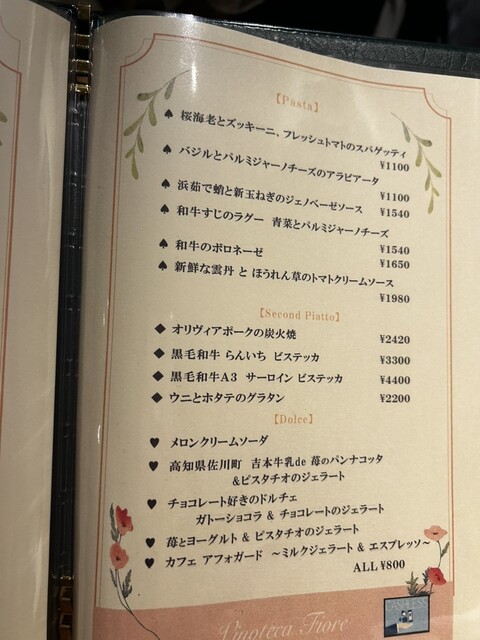 【Pasta】
♠ 桜海老とズッキーニ、フレッシュトマトのスパゲッティ
¥1100
♠ バジルとパルミジャーノチーズのアラビアータ
¥1100
♠ 浜茹で蛸と新玉ねぎのジェノベーゼソース
¥1540
♠ 和牛すじのラグー 青菜とパルミジャーノチーズ
¥1540
♠ 和牛のボロネーゼ
¥1650
♠ 新鮮な雲丹 と ほうれん草のトマトクリームソース
¥1980
【Second Piatto】
◆ オリヴィアポークの炭火焼 ¥2420
◆ 黒毛和牛 らんいち ビステッカ ¥3300
◆ 黒毛和牛A3 サーロイン ビステッカ ¥4400
◆ ウニとホタテのグラタン ¥2200
【Dolce】
♥ メロンクリームソーダ
♥ 高知県佐川町 吉本牛乳de 苺のパンナコッタ
&ピスタチオのジェラート
♥ チョコレート好きのドルチェ
ガトーショコラ & チョコレートのジェラート
♥ 苺とヨーグルト & ピスタチオのジェラート
♥ カフェ アフォガード ～ミルクジェラート & エスプレッソ～
ALL ¥800
Vinoteca Fiore